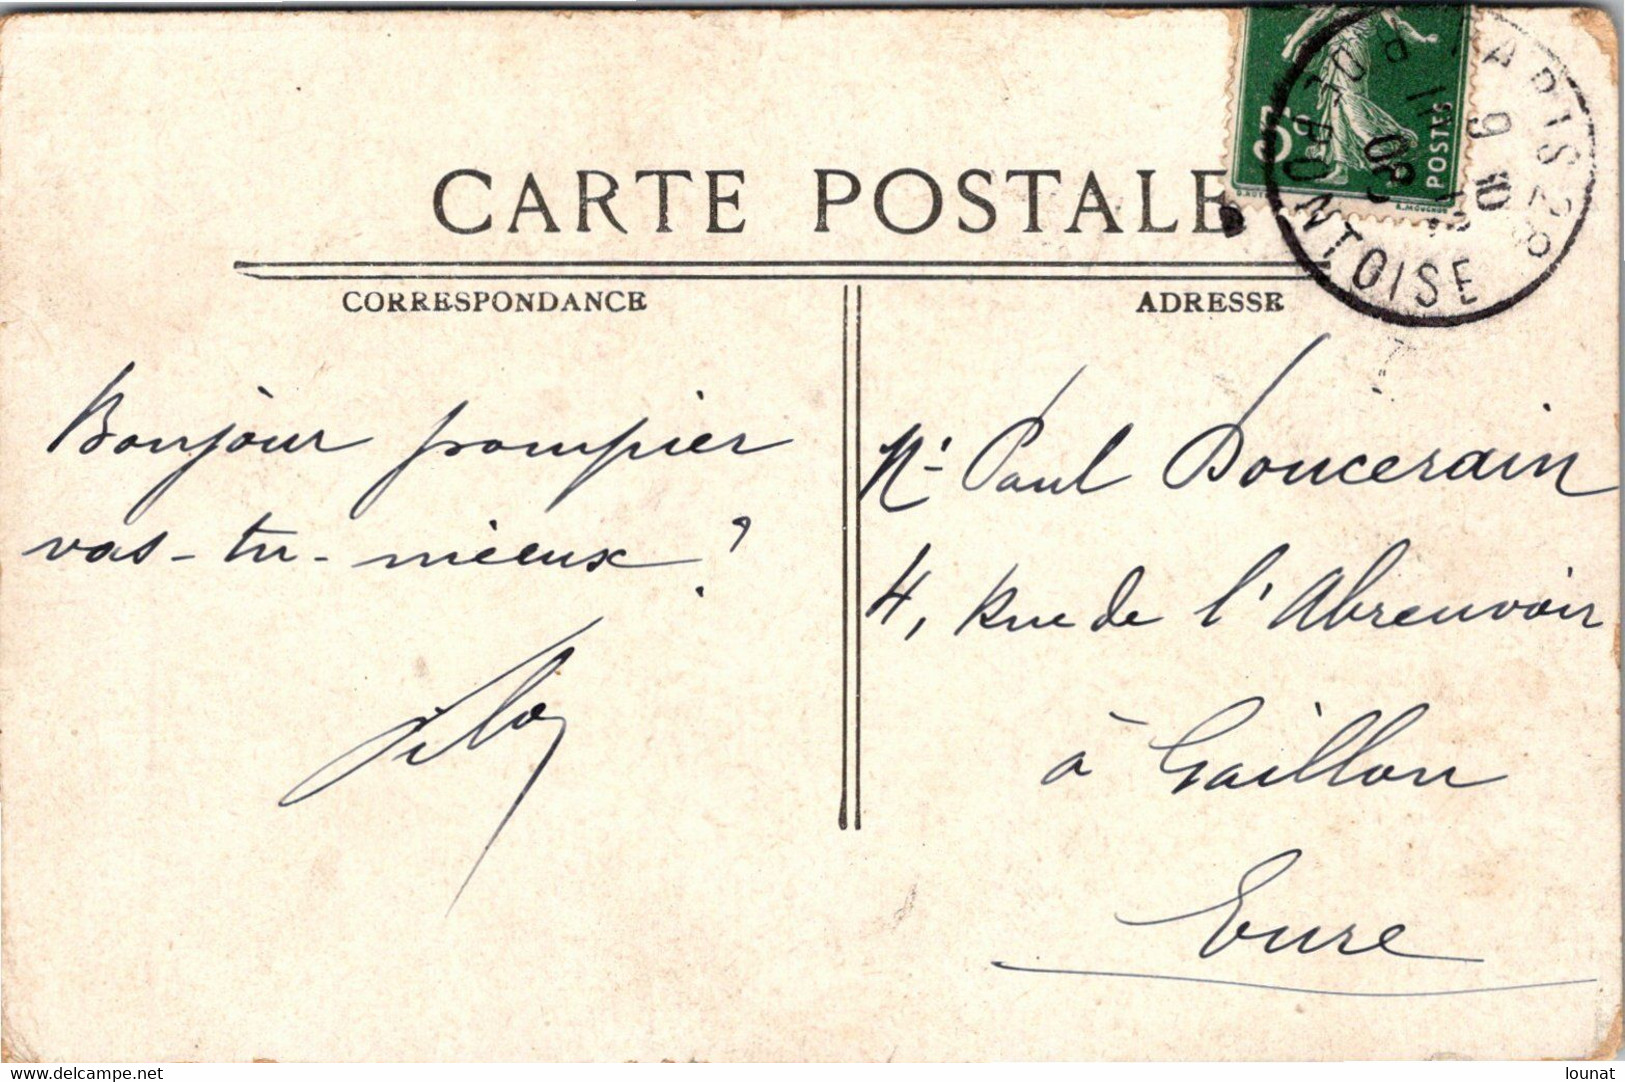 CARTE POSTALE
CORRESPONDANCE
ADRESSE
5c
POSTES
PARIS 28
R DE PONTOISE
9 10
11
08
Bonjour pompier
vas-tu-mieux?
Mr Paul Doucerain
4, Rue de l'Abreuvoir
à Gaillon
Eure
www.delcampe.net
lounat